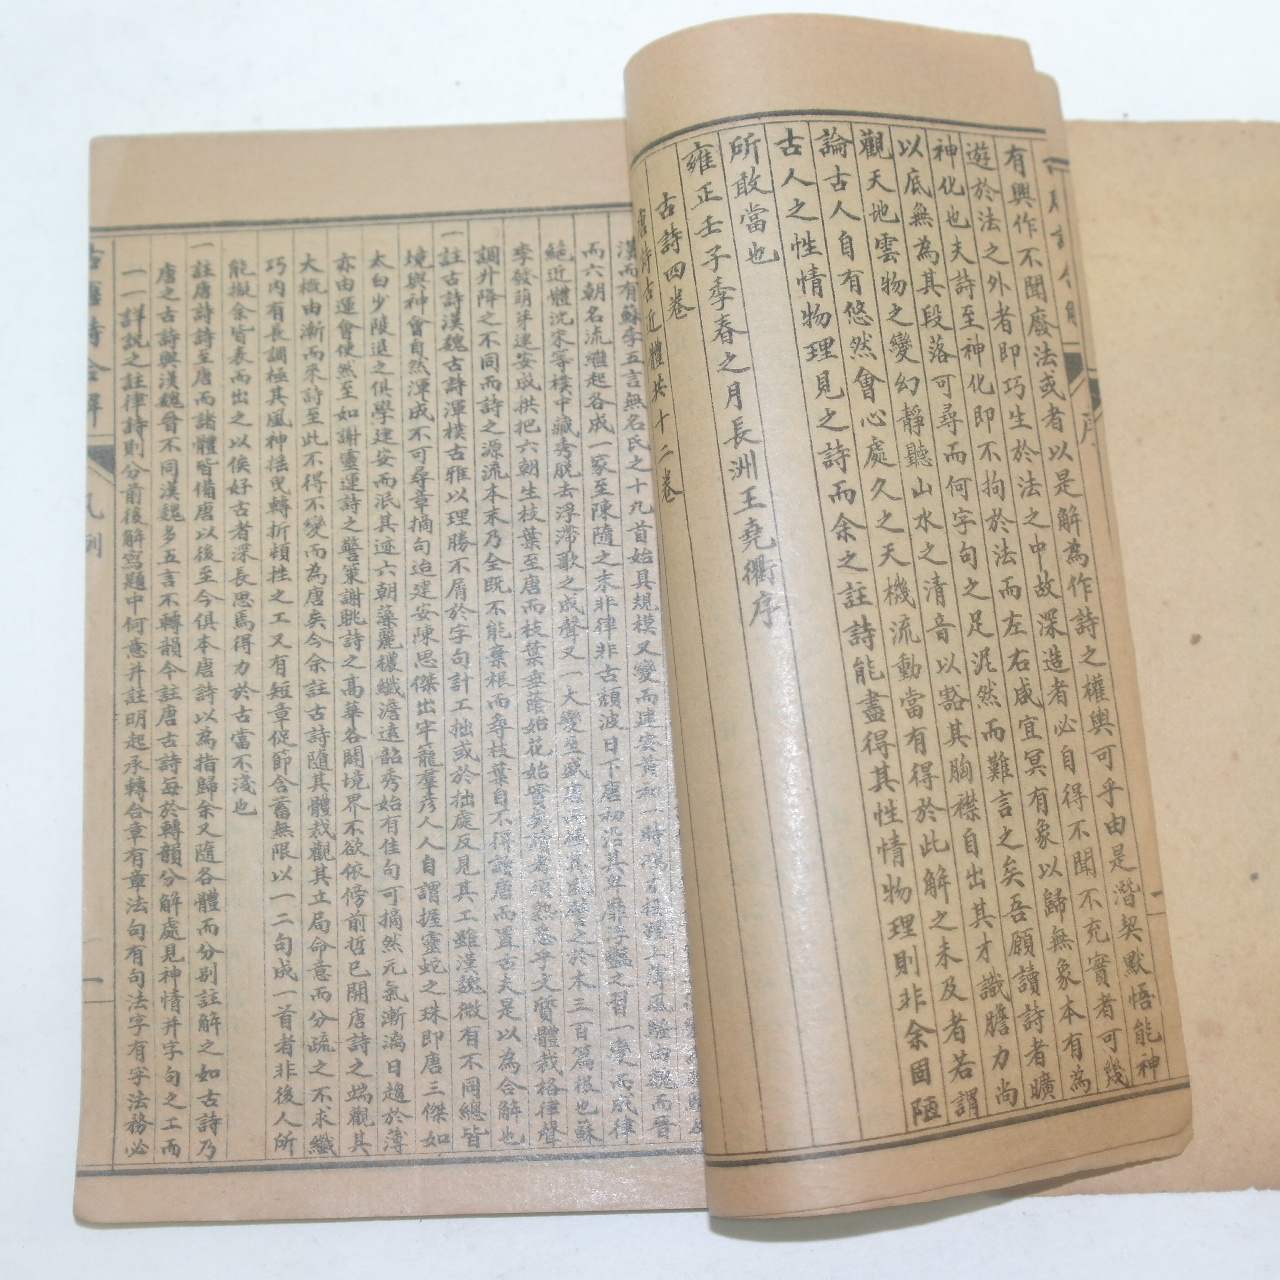 有興作不聞廢法或者以是解為作詩之權輿可乎由是潛契默悟能神
遊於法之外者即巧生於法之中故深造者必自得不聞不充實者可幾
神化也夫詩至神化即不拘於法而左右咸宜冥有象以歸無象本有為
以底無為其段落可尋而何字句之足泥然而難言之矣吾願讀詩者曠
觀天地雲物之變幻靜聽山水之清音以豁其胸襟自出其才識膽力尚
論古人自有悠然會心處久之天機流動當有得於此解之未及者若謂
古人之性情物理見之詩而余之註詩能盡得其性情物理則非余固陋
所敢當也
雍正壬子季春之月長洲王堯衢序
古詩四卷
唐詩古近體共十二卷
漢而有蘇李五言無名氏之十九首始具規模又變而建安黃初
而六朝名流繼起各成一家至陳隋之末非律非古頹波日下唐初沿其卑靡浮豔之習一變而成律
絕近體沈宋等樸中藏秀脫去浮滯歌之成聲又一大變
李發萌芽建安成拱把六朝生枝葉至唐而枝葉垂蔭始花始實
調升降之不同而詩之源流本末乃全既不能棄根而尋枝葉自不得讀唐而置古夫是以為合解也
一註古詩漢魏古詩渾樸古雅以理勝不屑於字句計工拙或於拙處反見其工雖漢魏微有不同總皆
境與神會自然渾成不可尋章摘句迨建安陳思傑出牢籠羣彥人人自謂握靈蛇之珠即唐三傑如
太白少陵退之俱學建安而泯其迹六朝藻麗穠纖澹遠韶秀始有佳句可摘然元氣漸漓日趨於薄
亦由運會使然至如謝靈運詩之警策謝眺詩之高華各闢境界不欲依傍前哲已開唐詩之端觀其
大概由漸而來詩至此不得不變而為唐矣今余註古詩隨其體裁觀其立局命意而分疏之不求纖
巧內有長調極其風神搖曳轉折頓挫之工又有短章促節含蓄無限以一二句成一首者非後人所
能擬余皆表而出之以俟好古者深長思焉得力於古當不淺也
一註唐詩詩至唐而諸體皆備唐以後至今俱本唐詩以為指歸余又隨各體而分別註解之如古詩乃
唐之古詩與漢魏晉不同漢魏多五言不轉韻今註唐古詩每於轉韻分解處見神情并字句之工而
一一詳說之註律詩則分前後解寫題中何意并註明起承轉合章有章法句有句法字有字法務必
古唐詩合解 凡例 一